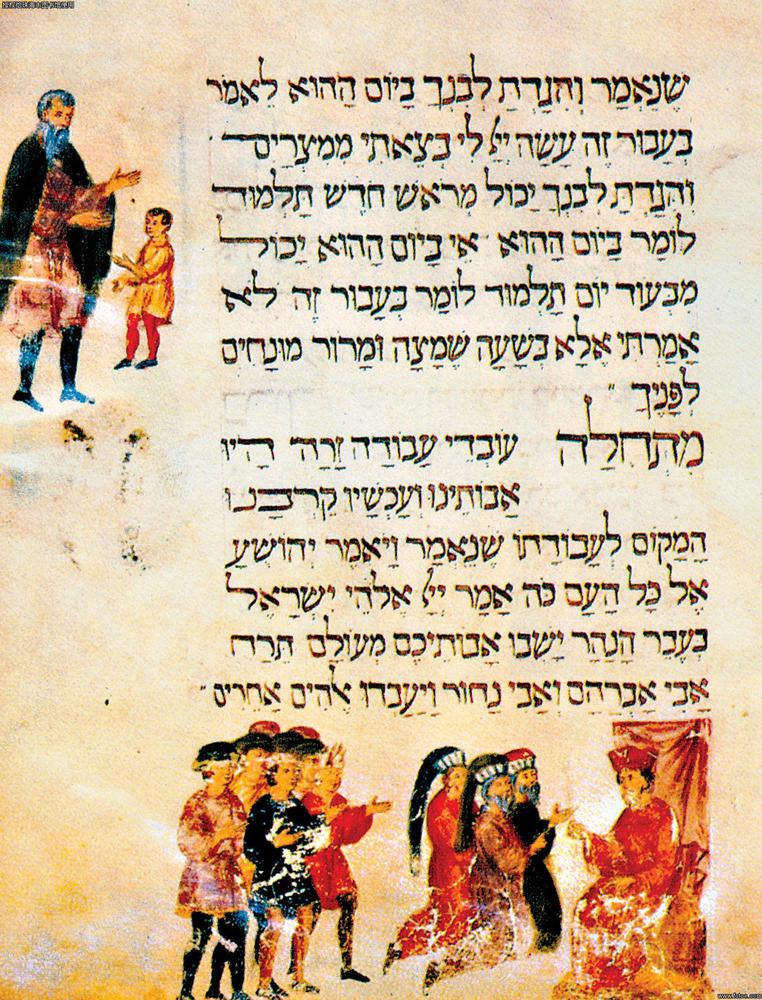 שֶׁנֶּאֱמַר וְהִגַּדְתָּ לְבִנְךָ בַּיוֹם הַהוּא לֵאמֹר
בַּעֲבוּר זֶה עָשָׂה יְיָ לִי בְּצֵאתִי מִמִּצְרָיִם
וְהִגַּדְתָּ לְבִנְךָ יָכוֹל מֵרֹאשׁ חֹדֶשׁ תַּלְמוּד
לוֹמַר בַּיוֹם הַהוּא אִי בַּיוֹם הַהוּא יָכוֹל
מִבְּעוֹד יוֹם תַּלְמוּד לוֹמַר בַּעֲבוּר זֶה לֹא
אָמַרְתִּי אֶלָּא בְּשָׁעָה שֶׁמַּצָּה וּמָרוֹר מוּנָחִים
לְפָנֶיךָ
מִתְּחִלָּה עוֹבְדֵי עֲבוֹדָה זָרָה הָיוּ
אֲבוֹתֵינוּ וְעַכְשָׁיו קֵרְבָנוּ
הַמָּקוֹם לַעֲבוֹדָתוֹ שֶׁנֶּאֱמַר וַיֹּאמֶר יְהוֹשֻׁעַ
אֶל כָּל הָעָם כֹּה אָמַר יְיָ אֱלֹהֵי יִשְׂרָאֵל
בְּעֵבֶר הַנָּהָר יָשְׁבוּ אֲבוֹתֵיכֶם מֵעוֹלָם תֶּרַח
אֲבִי אַבְרָהָם וַאֲבִי נָחוֹר וַיַּעַבְדוּ אֱלֹהִים אֲחֵרִים
www.fotoe.com